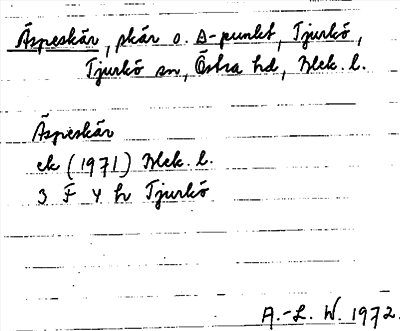 Äspeskär, skär o. Δ-punkt, Tjurkö,
Tjurkö sn, Östra hd, Blek. l.
Äspeskär
ek (1971) Blek. l.
3 F 4 h Tjurkö
A.-L. W. 1972.